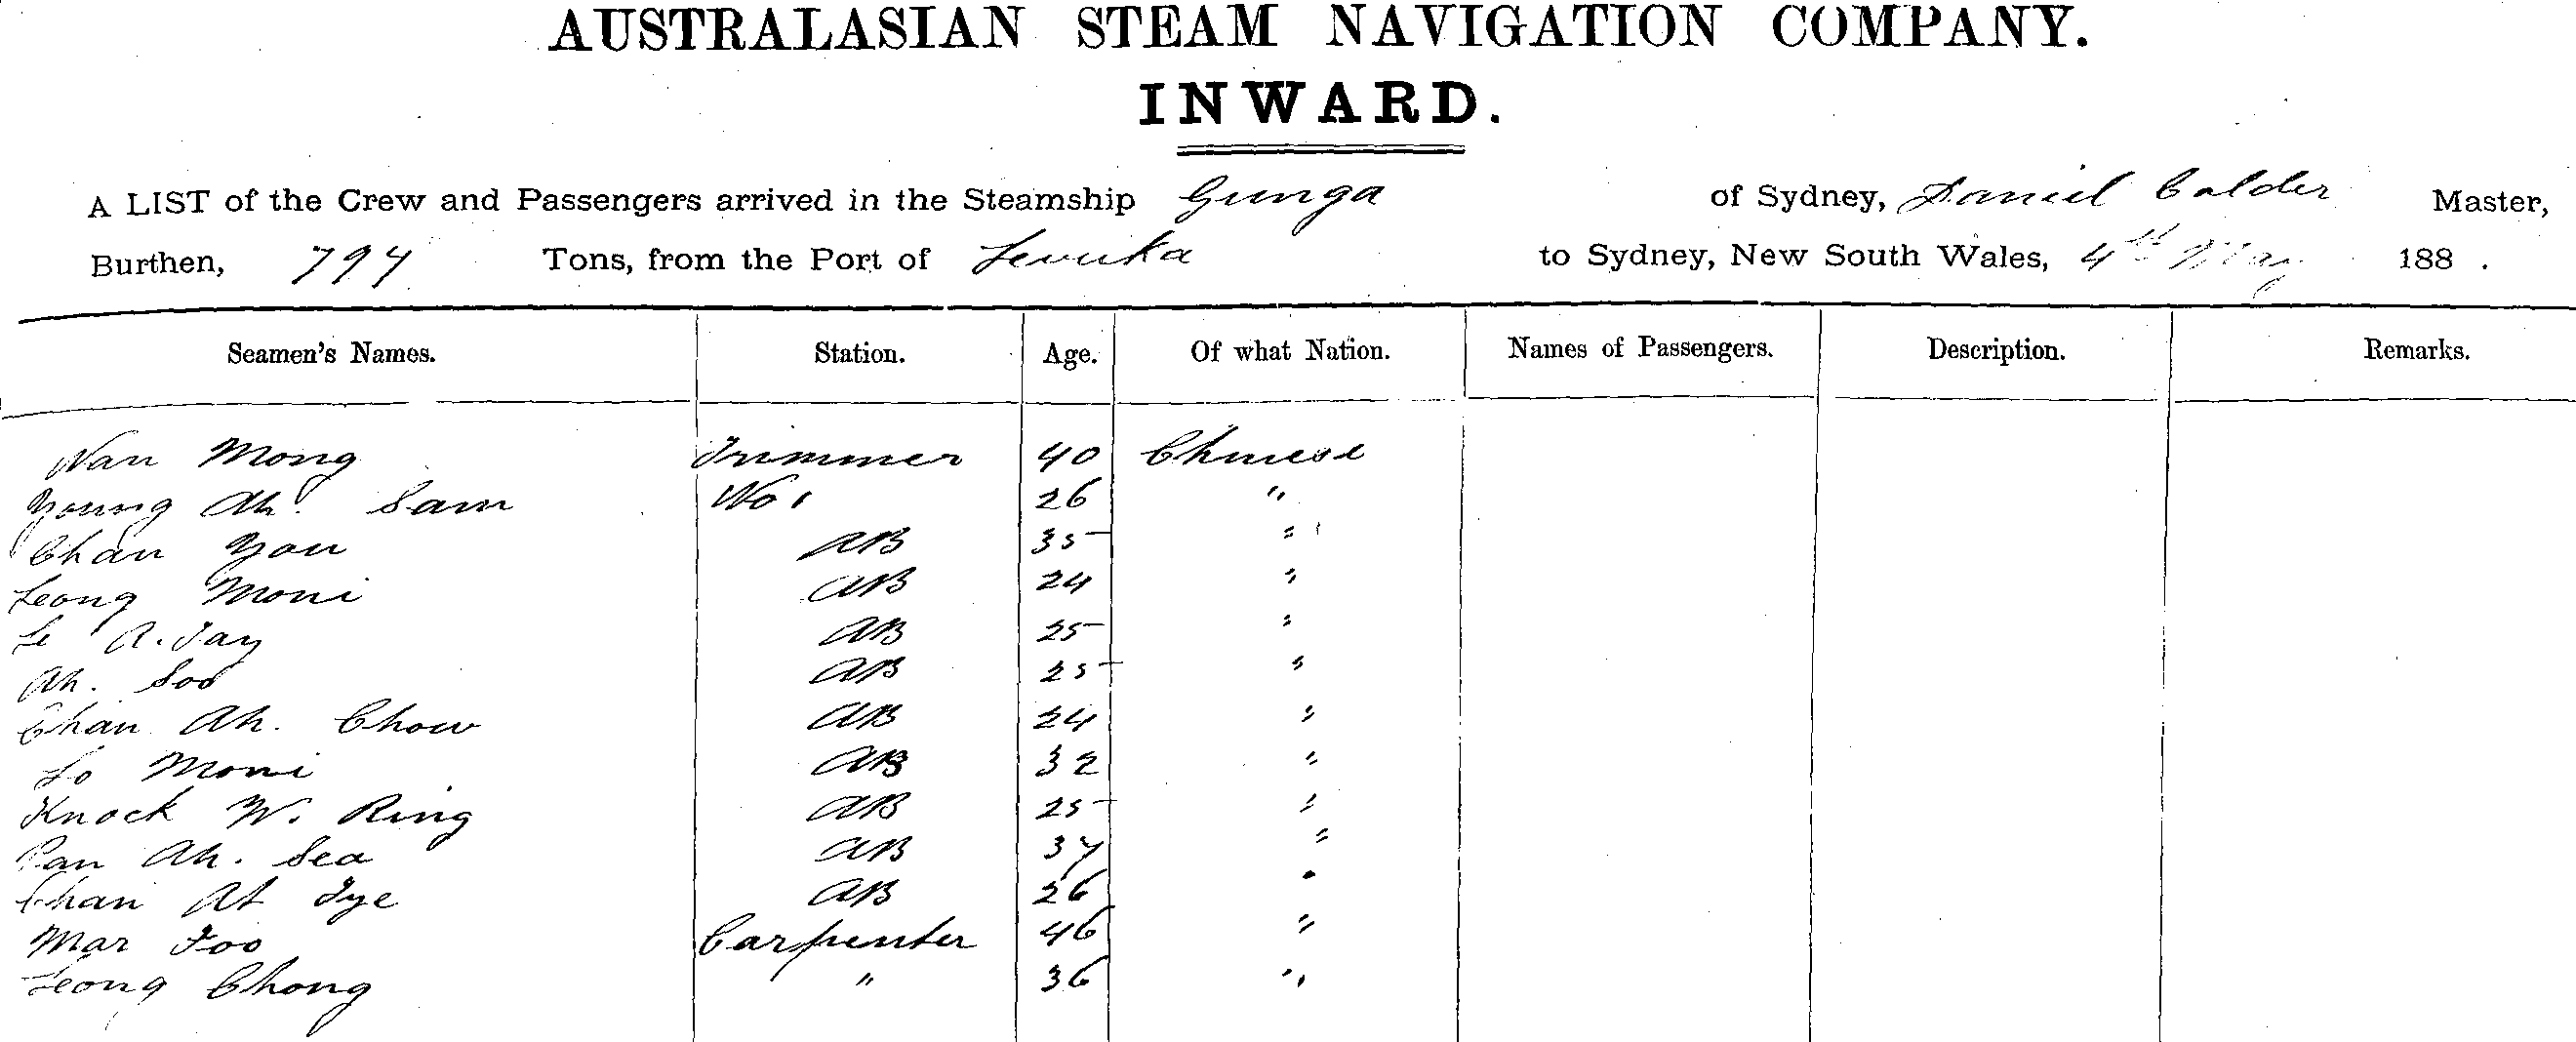 AUSTRALASIAN STEAM NAVIGATION COMPANY.
INWARD.
A LIST of the Crew and Passengers arrived in the Steamship Gunga of Sydney, Daniel Calder Master,
Burthen, 794 Tons, from the Port of Levuka to Sydney, New South Wales, 4th May 188 .
Seamen's Names. Station. Age. Of what Nation. Names of Passengers. Description. Remarks.
Wan Mong Trimmer 40 Chinese
Young Ah. Sam No 1 26 "
Chan You AB 35 "
Leong Moni AB 24 "
Le A. Jay AB 25 "
Ah. Soo AB 25 "
Chan Ah. Chow AB 24 "
Lo Moni AB 32 "
Knock W. Ring AB 25 "
Pan Ah. Sea AB 37 "
Chan At Tye AB 26 "
Mar Foo Carpenter 46 "
Leong Chong " 36 "